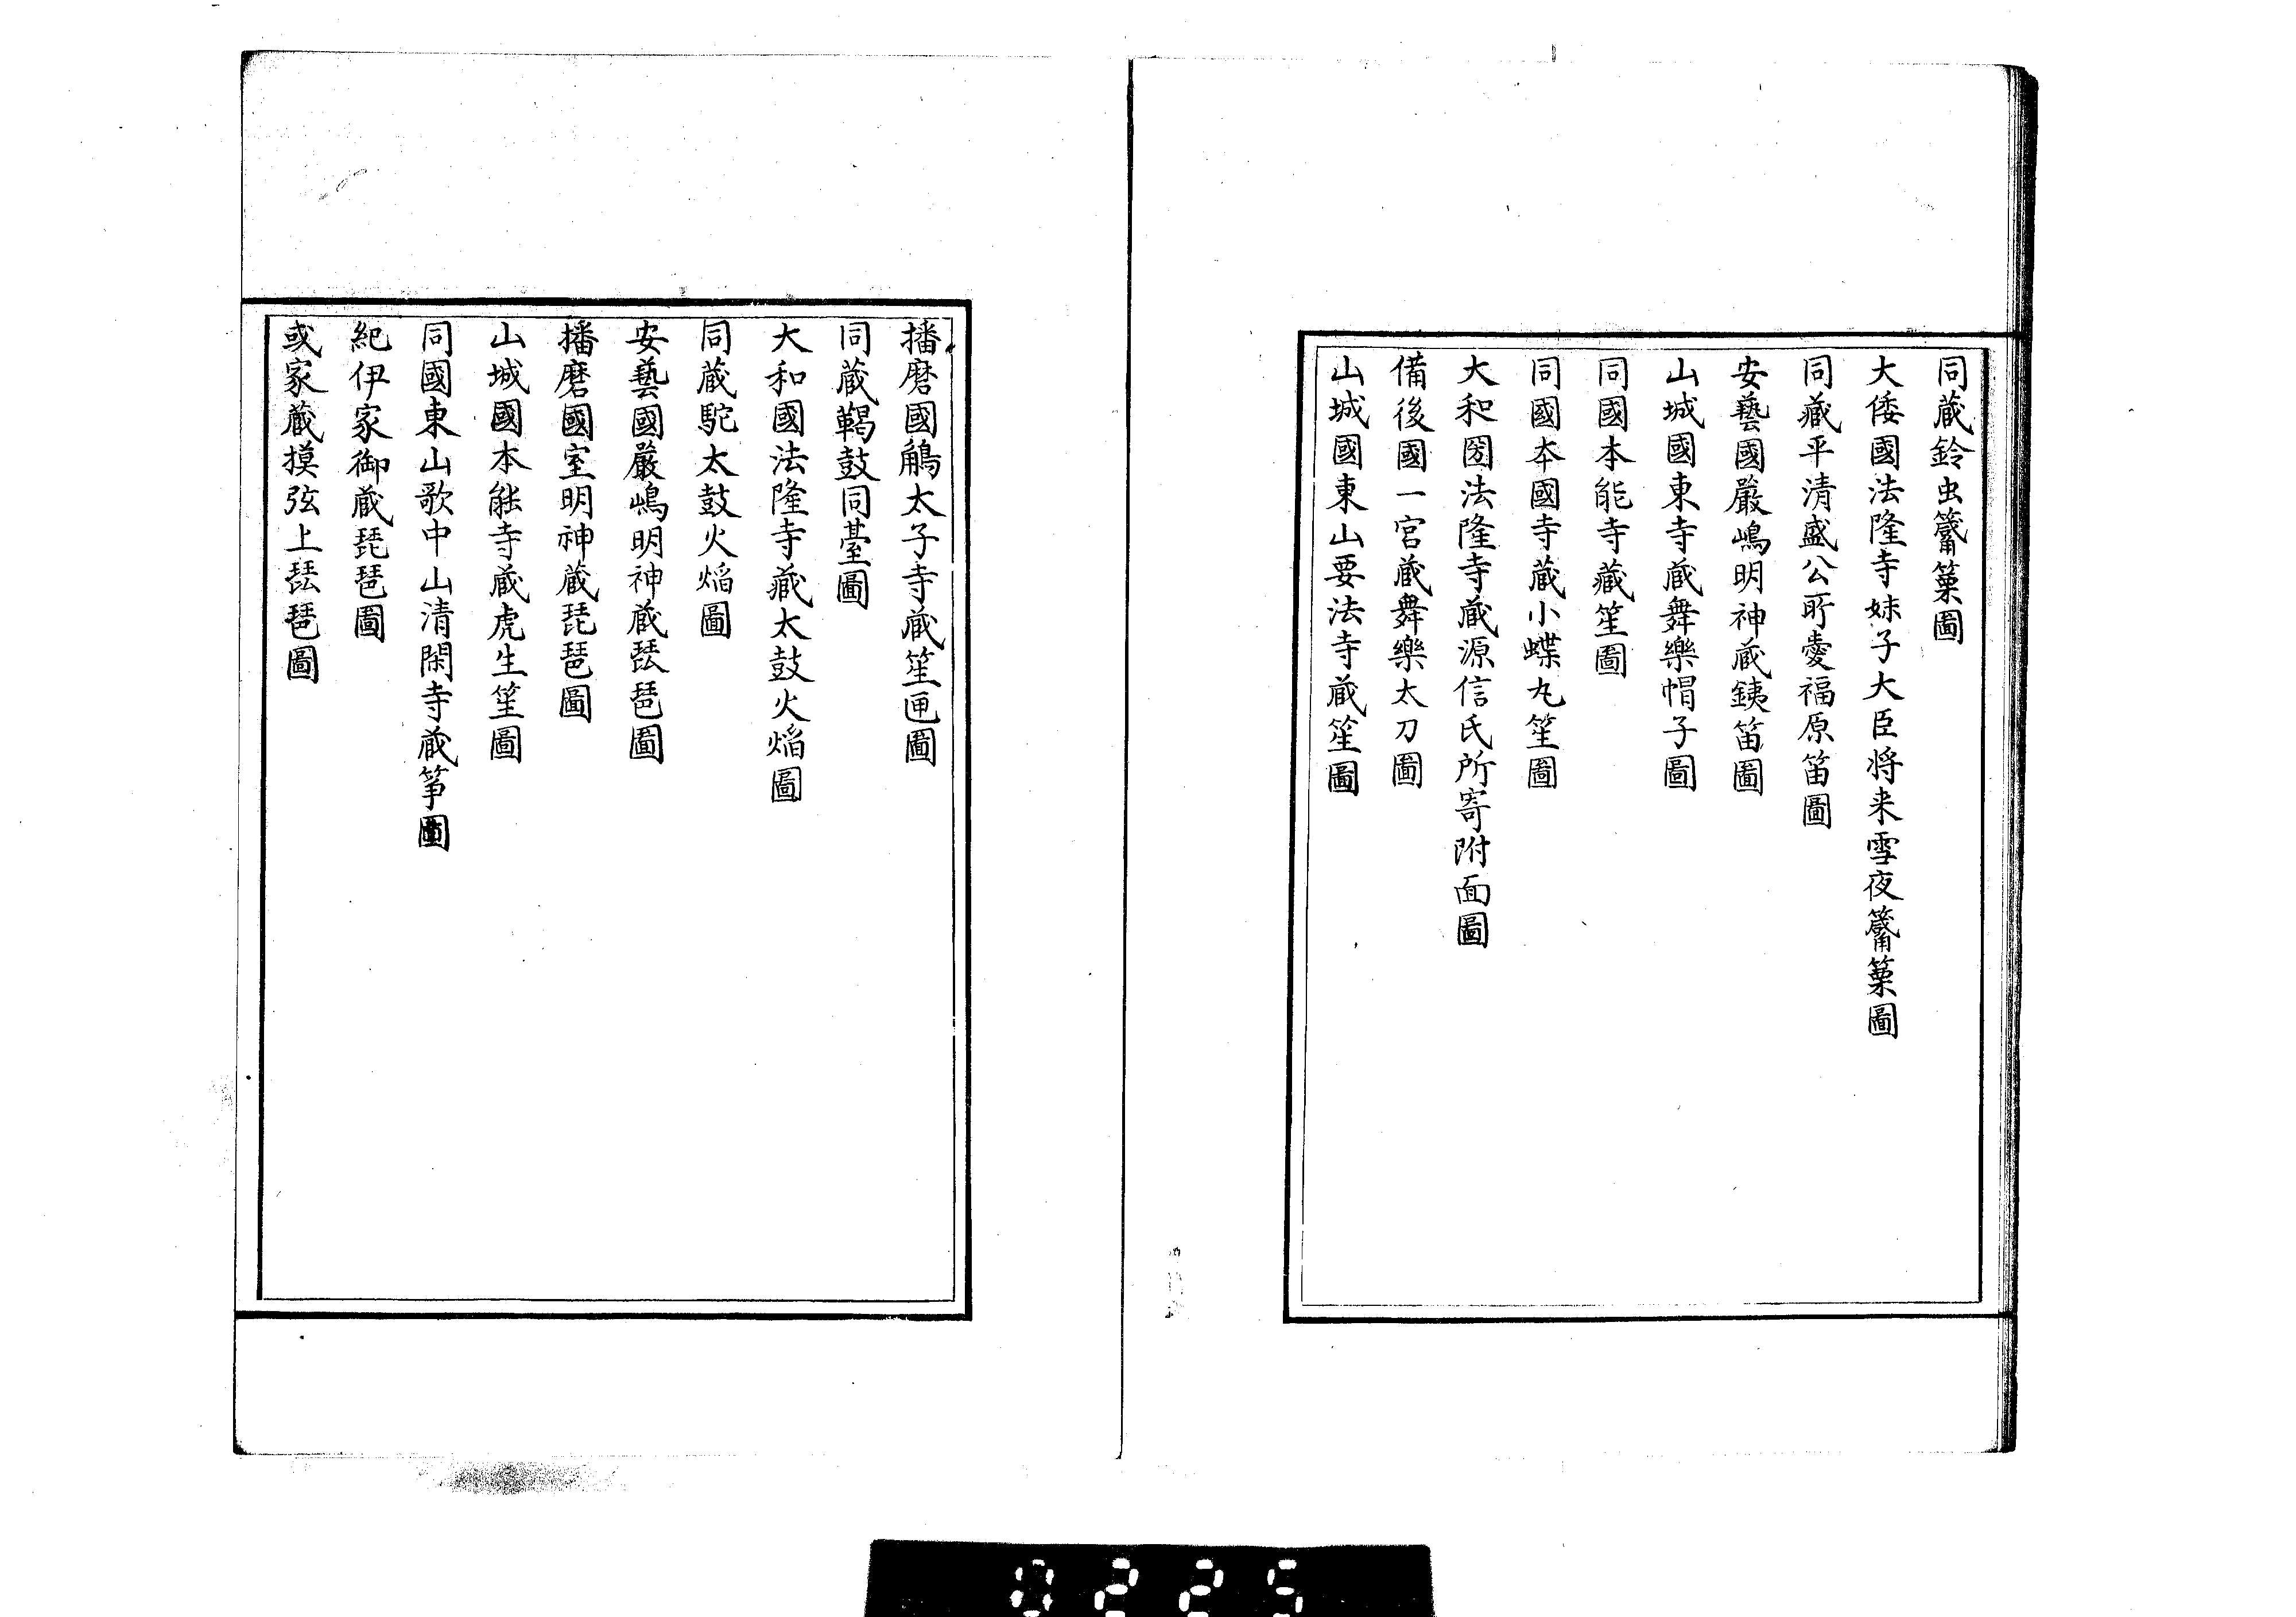 同蔵鈴虫篳篥圖
大倭國法隆寺妹子大臣将来雪夜篳篥圖
同蔵平清盛公所愛福原笛圖
安藝國嚴嶋明神蔵銕笛圖
山城國東寺蔵舞樂帽子圖
同國本能寺蔵笙圖
同國本國寺蔵小蝶丸笙圖
大和圀法隆寺蔵源信氏所寄附面圖
備後國一宮蔵舞樂太刀圖
山城國東山要法寺蔵笙圖
播磨國鵤太子寺蔵笙匣圖
同蔵鞨鼓同臺圖
大和國法隆寺蔵太鼓火焔圖
同蔵駝太鼓火焔圖
安藝國嚴嶋明神蔵琵琶圖
播磨國室明神蔵琵琶圖
山城國本能寺蔵虎生笙圖
同國東山歌中山清閑寺蔵筝圖
紀伊家御蔵琵琶圖
或家蔵摸弦上琵琶圖
0225